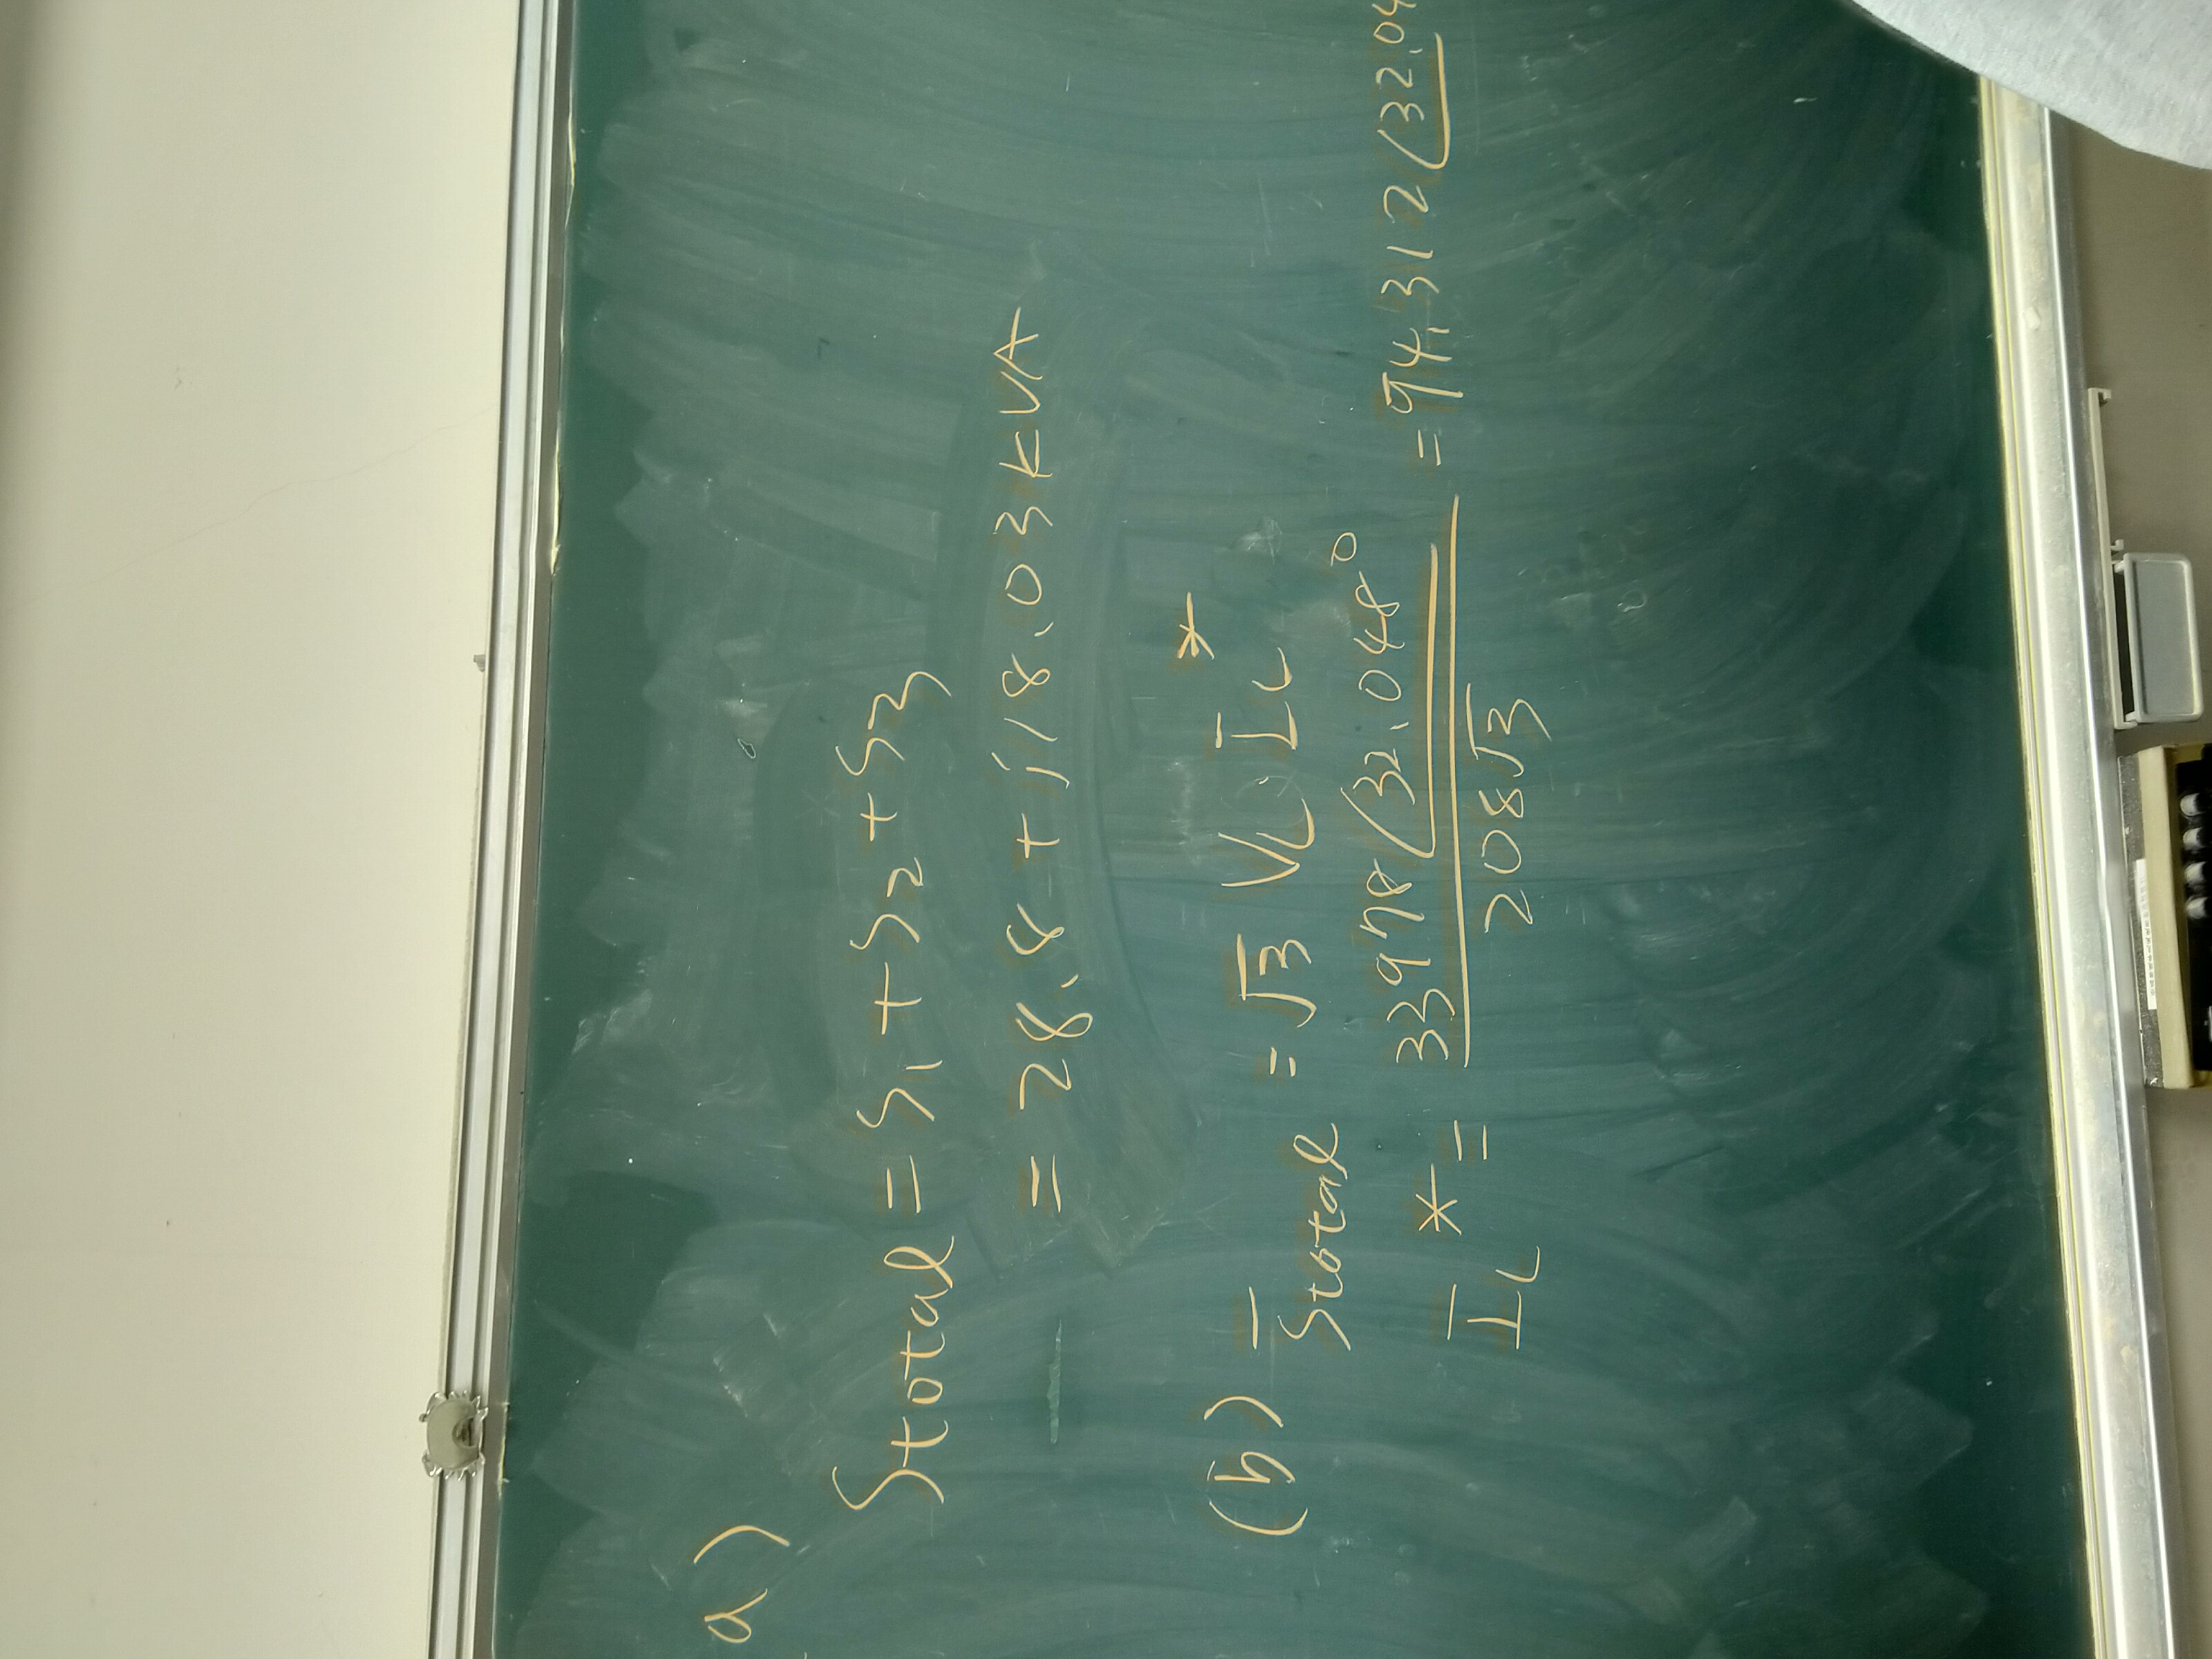 a)
Stotal = S₁ + S₂ + S₃
= 28.8 + j18.03 kVA
(b) S̅total = √3 V_L I̅_L*
I̅_L* = 33978∠32.048° / 208√3 = 94.312∠32.04